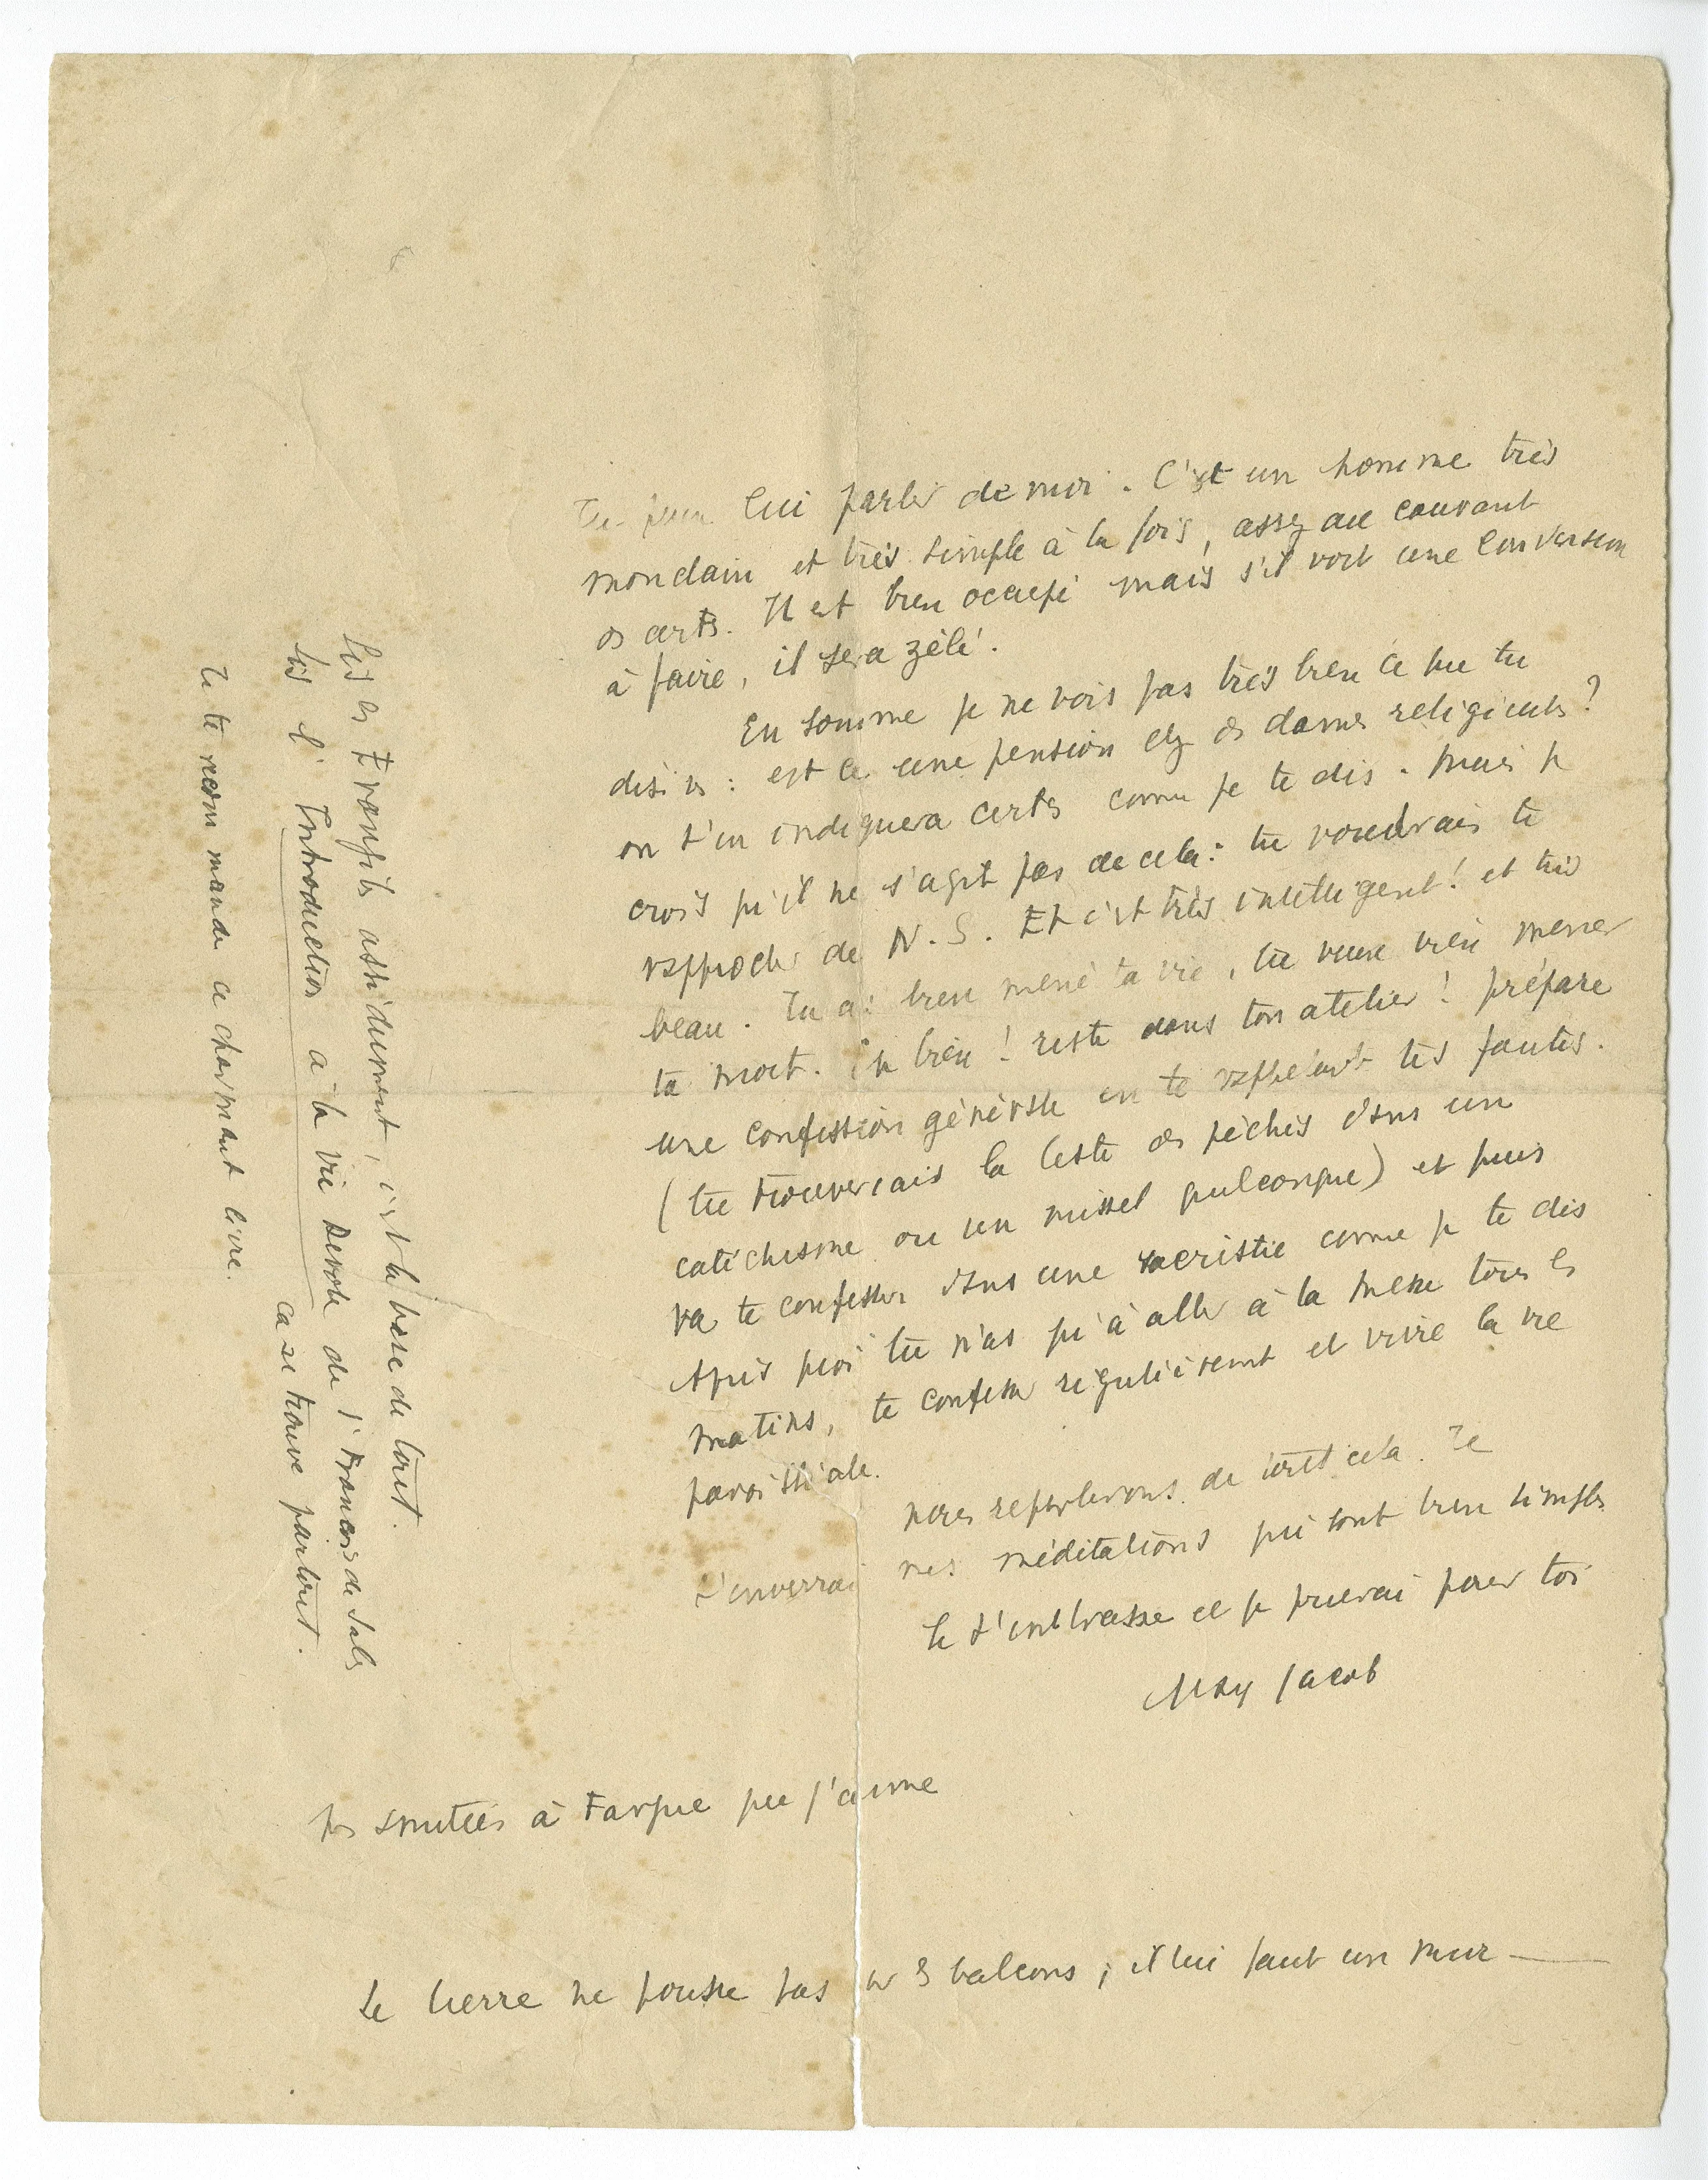 Tu peux lui parler de moi. C'est un homme très
mondain et très simple à la fois, assez au courant
ds arts. Il est bien occupé mais s'il voit une conversion
à faire, il sera zélé.
En somme je ne vois pas très bien ce que tu
désires : est ce une pension chez ds dames religieuses ?
on t'en indiquera certes comme je te dis. Mais je
crois qu'il ne s'agit pas de cela : tu voudrais te
rapprocher de N. S. Et c'est très intelligent ! et très
beau. Tu as bien mené ta vie, tu veux bien mener
ta mort. Eh bien ! reste dans ton atelier ! prépare
une confession générale en te rappelant tes fautes.
(tu trouverais la liste des péchés dans un
catéchisme ou un missel quelconque) et puis
va te confesser dans une sacristie comme je te dis
Après quoi tu n'as qu'à aller à la Messe tous les
matins, te confesser régulièrement et vivre la vie
paroissiale.
nous reparlerons de tout cela. Je
t'enverrai mes méditations qui sont bien simples
Je t'embrasse et je prierai pour toi
Max Jacob
à Fargue que j'aime
Le lierre ne pousse pas sur ls balcons ; il lui faut un mur —
Lis les Evangiles assidument, c'est la base de tout.
Lis l'Introduction à la vie Devote de St Francois de Sales
ca se trouve partout.
Je te recommande ce charmant livre.